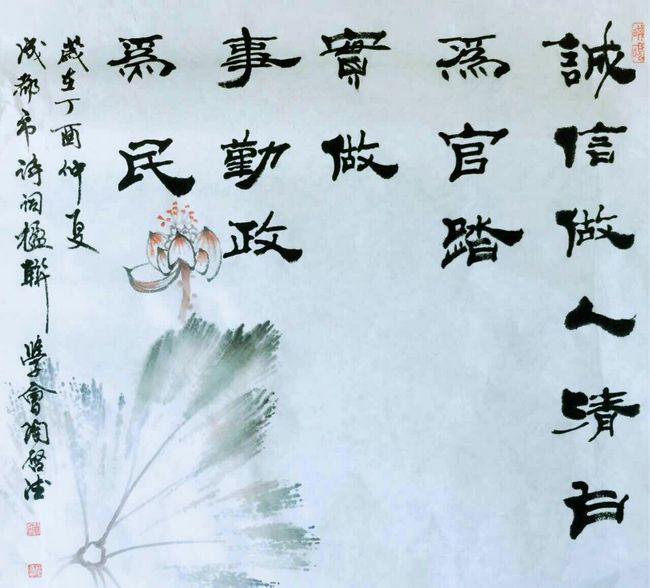 誠信做人清白
爲官踏
實做
事勤政
爲民
歲在丁酉仲夏
成都市诗词楹聯學會陶啓